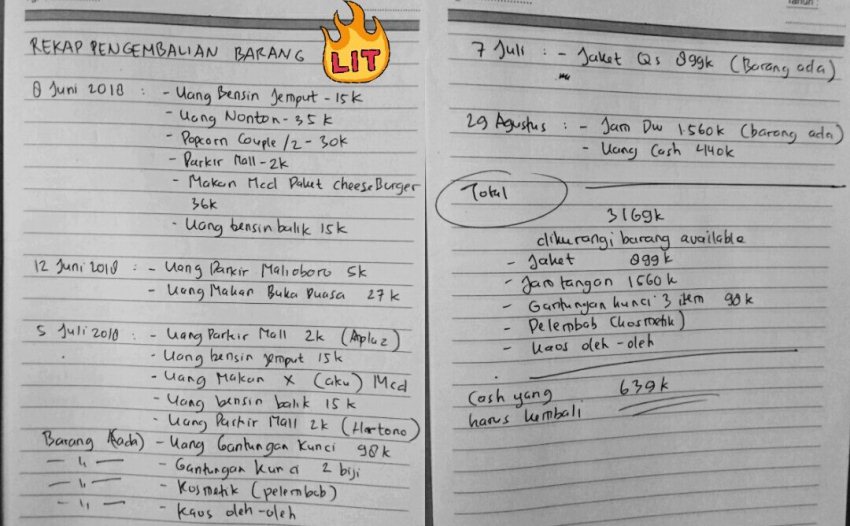 REKAP PENGEMBALIAN BARANG
LIT
8 Juni 2018 : - Uang Bensin Jemput - 15k
- Uang Nonton - 35k
- Popcorn Couple /2 - 30k
- Parkir Mall - 2k
- Makan Mcd Paket CheeseBurger
36k
- Uang bensin balik 15k
12 Juni 2018 : - Uang Parkir Malioboro 5k
- Uang Makan Buka Puasa 27k
5 Juli 2018 : - Uang Parkir Mall 2k (Aplaz)
- Uang bensin jemput 15k
- Uang Makan X (aku) Mcd
- Uang bensin balik 15k
- Uang Parkir Mall 2k (Hartono)
Barang (ada) - Uang Gantungan Kunci 98k
— ıı — - Gantungan Kunci 2 biji
— ıı — - Kosmetik (pelembab)
— ıı — - Kaos oleh-oleh
Tahun :
7 Juli : - Jaket Qs 899k (Barang ada)
29 Agustus : - Jam Dw 1.560k (barang ada)
- Uang Cash 440k
Total
3169k
dikurangi barang available
- Jaket 899k
- Jam tangan 1560k
- Gantungan kunci 3 item 98k
- Pelembab (kosmetik)
- Kaos oleh-oleh
Cash yang 639k
harus kembali